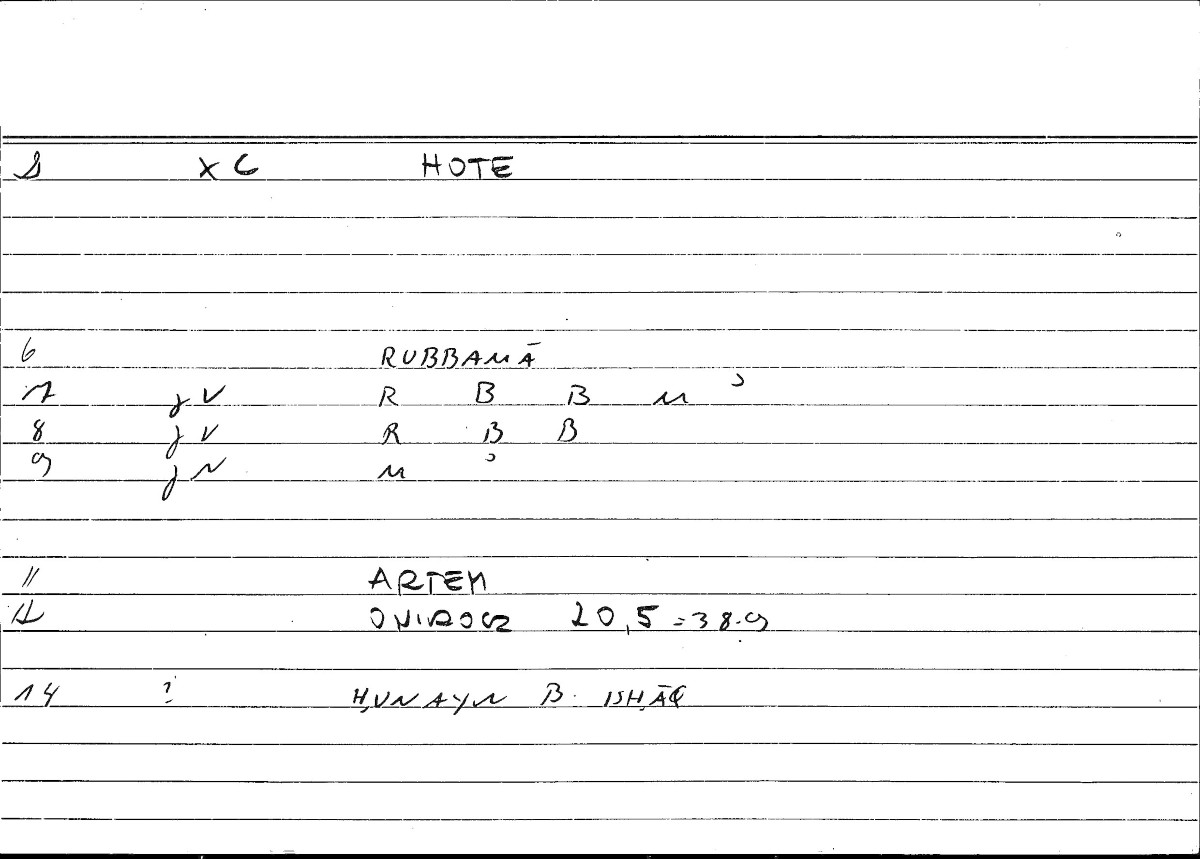 HOTE
6 RUBBAMĀ
7 gV R B B M ʾ
8 gV R B B
9 gN M ʾ
11 ARTEM
ONIROCR 20,5 = 38.9
14 ? ḤUNAYN B. ISḤĀQ